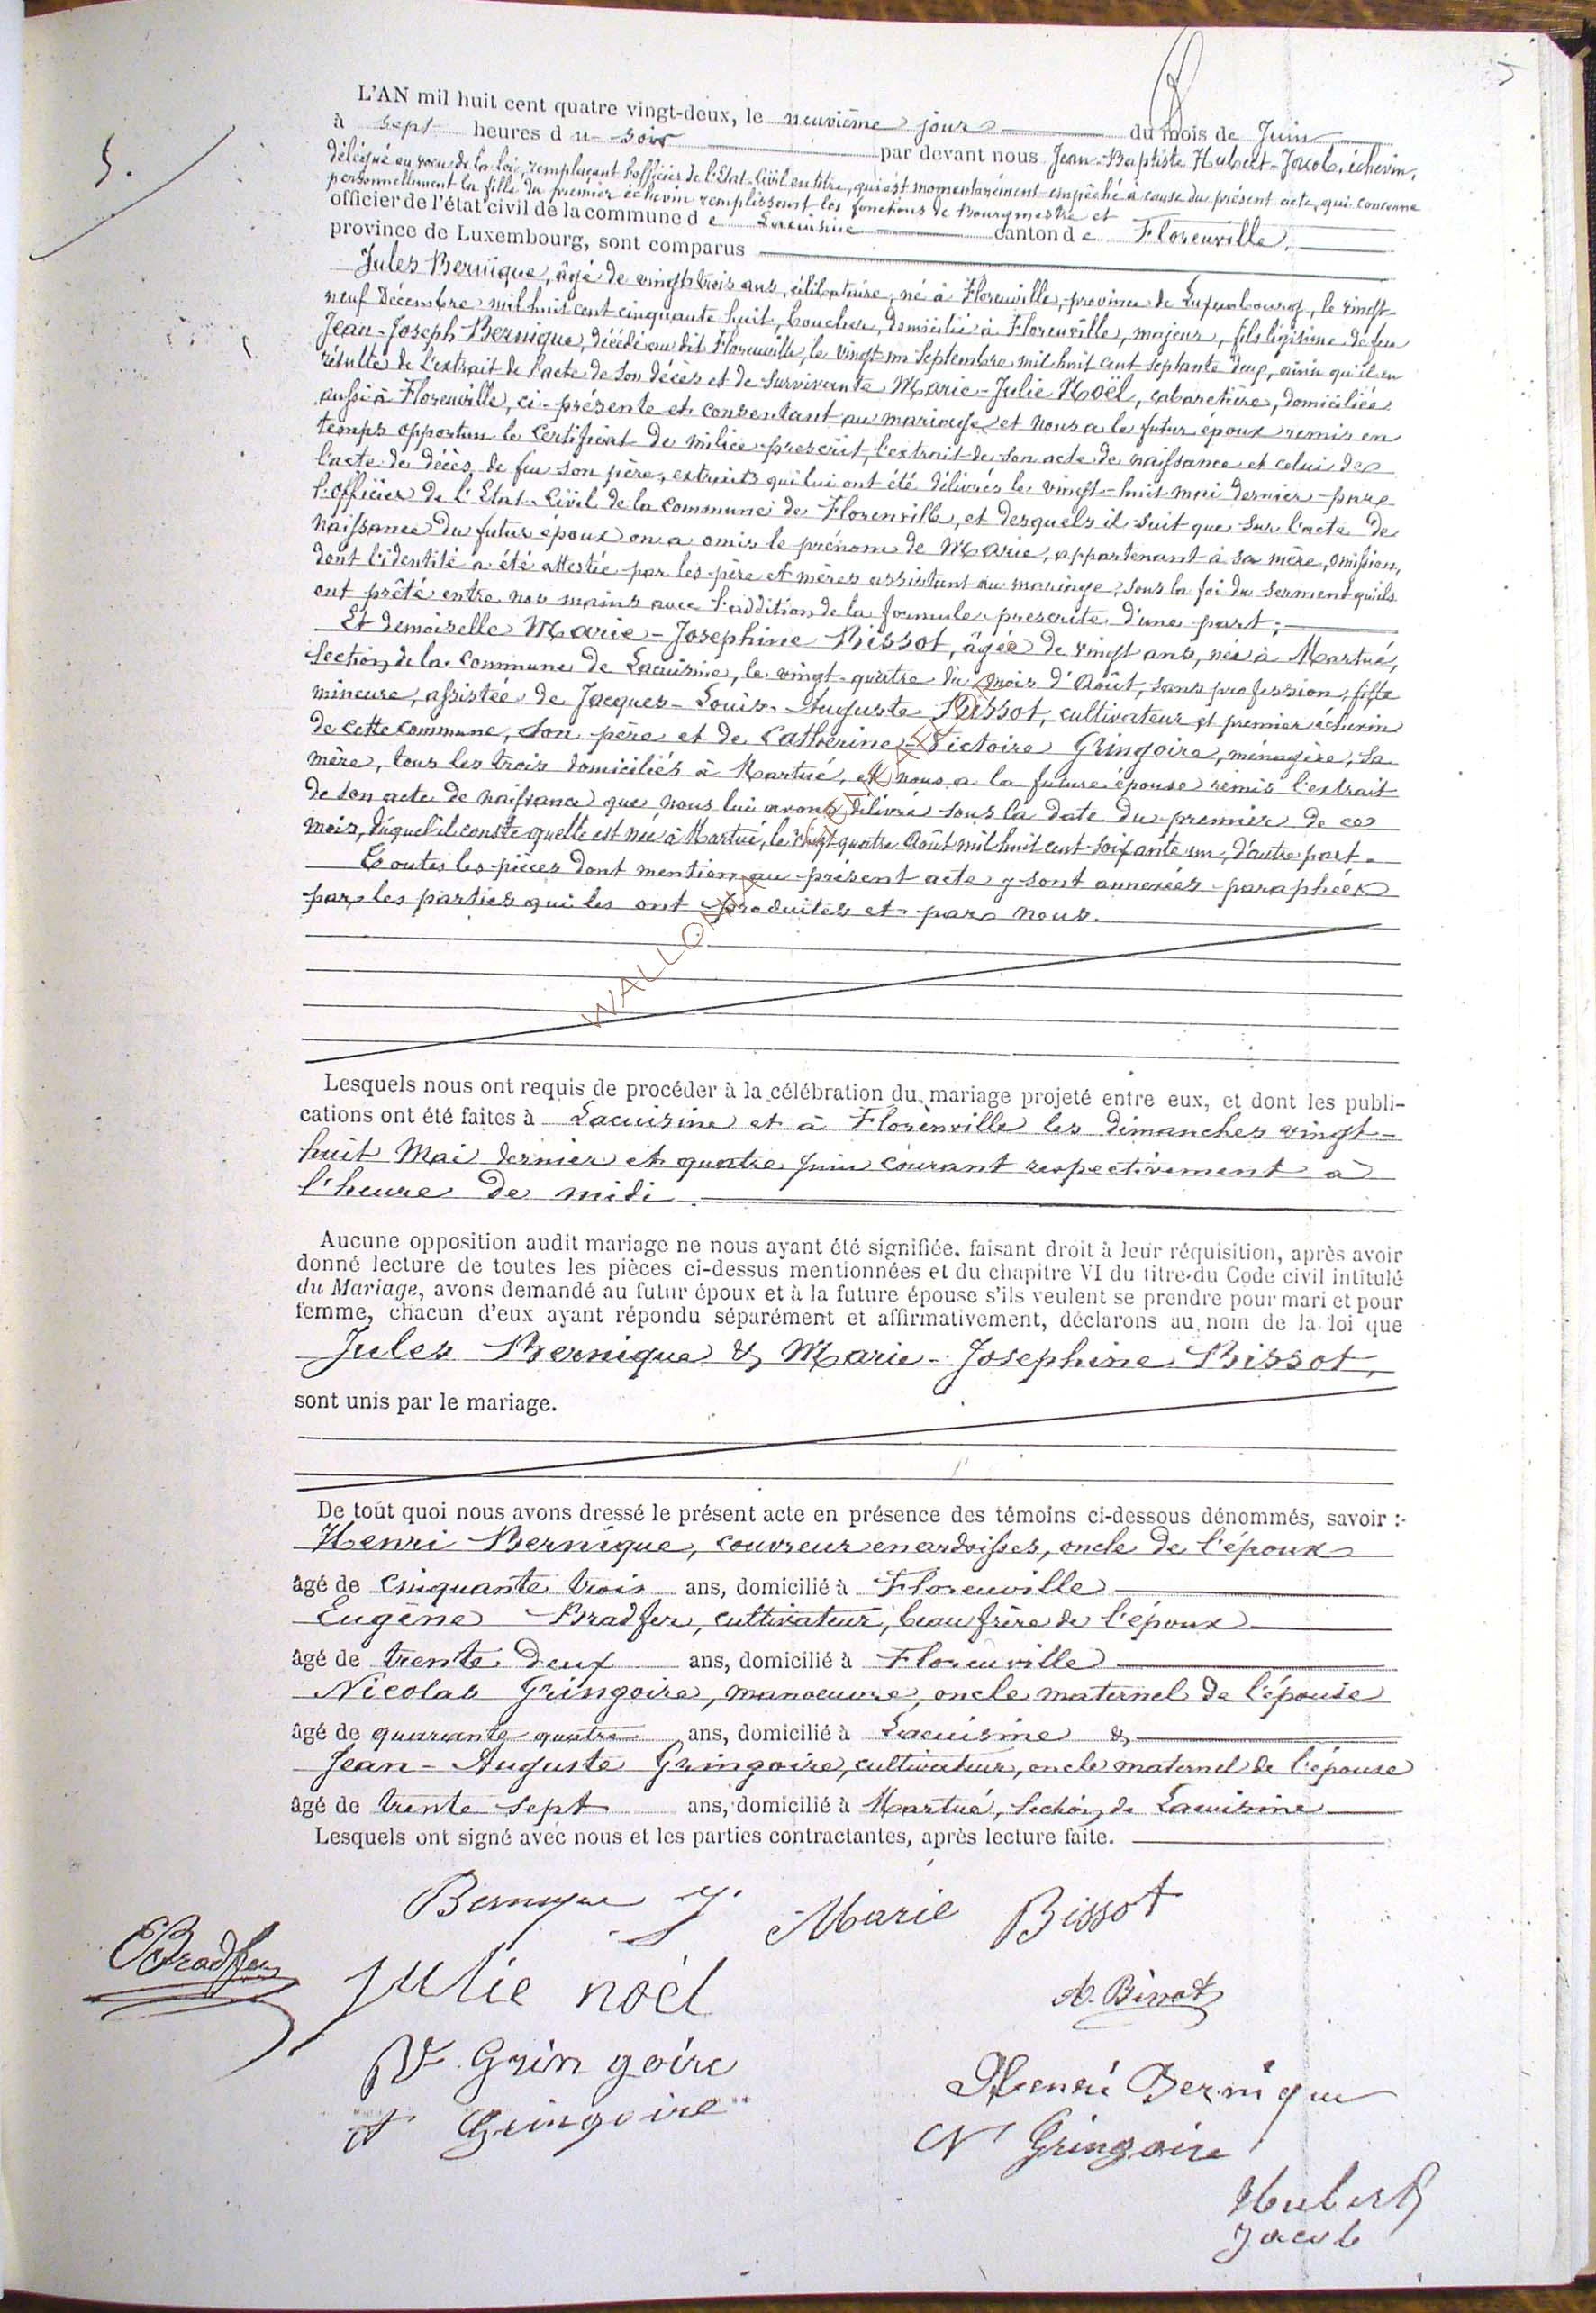 5
5.
L'AN mil huit cent quatre vingt-deux, le neuvième jour du mois de Juin
à sept heures du soir par devant nous Jean-Baptiste Hubert-Jacob, échevin,
délégué au vœu de la loi, remplaçant l'officier de l'Etat-Civil en titre, qui est momentanément empêché à cause du présent acte, qui concerne
personnellement la fille du premier échevin remplissant les fonctions de Bourgmestre et
officier de l'état civil de la commune de Lacuisine canton de Florenville.
province de Luxembourg, sont comparus
Jules Bernique, âgé de vingt trois ans, célibataire, né à Florenville, province de Luxembourg, le vingt-
neuf Décembre mil huit cent cinquante huit, boucher, domicilié à Florenville, majeur, fils légitime de feu
Jean-Joseph Bernique, décédé au dit Florenville, le vingt un Septembre mil huit cent septante deux, ainsi qu'il en
résulte de l'extrait de l'acte de son décès et de survivante Marie-Julie Noël, cabaretière, domiciliée
aussi à Florenville, ci-présente et consentant au mariage et nous a le futur époux remis en
temps opportun le certificat de milice prescrit, l'extrait de son acte de naissance et celui de
l'acte de décès de feu son père, extraits qui lui ont été délivrés le vingt-huit mai dernier par
l'officier de l'Etat-Civil de la commune de Florenville, et desquels il suit que sur l'acte de
naissance du futur époux on a omis le prénom de Marie, appartenant à sa mère, omission,
dont l'identité a été attestée par les père et mères assistant au mariage, sous la foi du serment qu'ils
ont prêté entre nos mains avec l'addition de la formule prescrite d'une part;
Et demoiselle Marie-Josephine Bissot, âgée de vingt ans, née à Martué,
section de la commune de Lacuisine, le vingt-quatre du mois d'Août, sans profession, fille
mineure, assistée de Jacques-Louis-Auguste Bissot, cultivateur et premier échevin
de cette commune, son père et de Catherine-Victoire Gringoire, ménagère, sa
mère, tous les trois domiciliés à Martué, et nous a la future épouse remis l'extrait
de son acte de naissance que nous lui avons délivré sous la date du premier de ce
mois, duquel il conste quelle est née à Martué, le vingt-quatre Août mil huit cent soixante un, d'autre part.
Toutes les pièces dont mention au présent acte y sont annexées paraphées
par les parties qui les ont produites et par nous.
WALLONIA
Lesquels nous ont requis de procéder à la célébration du mariage projeté entre eux, et dont les publi-
cations ont été faites à Lacuisine et à Florenville les dimanches vingt-
huit Mai dernier et quatre Juin courant respectivement à
l'heure de midi.
Aucune opposition audit mariage ne nous ayant été signifiée, faisant droit à leur réquisition, après avoir
donné lecture de toutes les pièces ci-dessus mentionnées et du chapitre VI du titre du Code civil intitulé
du Mariage, avons demandé au futur époux et à la future épouse s'ils veulent se prendre pour mari et pour
femme, chacun d'eux ayant répondu séparément et affirmativement, déclarons au nom de la loi que
Jules Bernique & Marie-Josephine Bissot,
sont unis par le mariage.
De tout quoi nous avons dressé le présent acte en présence des témoins ci-dessous dénommés, savoir :
Henri Bernique, couvreur en ardoises, oncle de l'époux
âgé de cinquante trois ans, domicilié à Florenville
Eugène Bradfer, cultivateur, beau frère de l'époux
âgé de trente deux ans, domicilié à Florenville
Nicolas Gringoire, manoeuvre, oncle maternel de l'épouse
âgé de quarante quatre ans, domicilié à Lacuisine &
Jean-Auguste Gringoire, cultivateur, oncle maternel de l'épouse
âgé de trente sept ans, domicilié à Martué, section de Lacuisine
Lesquels ont signé avec nous et les parties contractantes, après lecture faite.
Bernique J. Marie Bissot
EBradfer Julie noèl A. Bissot
V. Gringoire Henri Bernique
A Gringoire N Gringoire
Hubert
Jacob